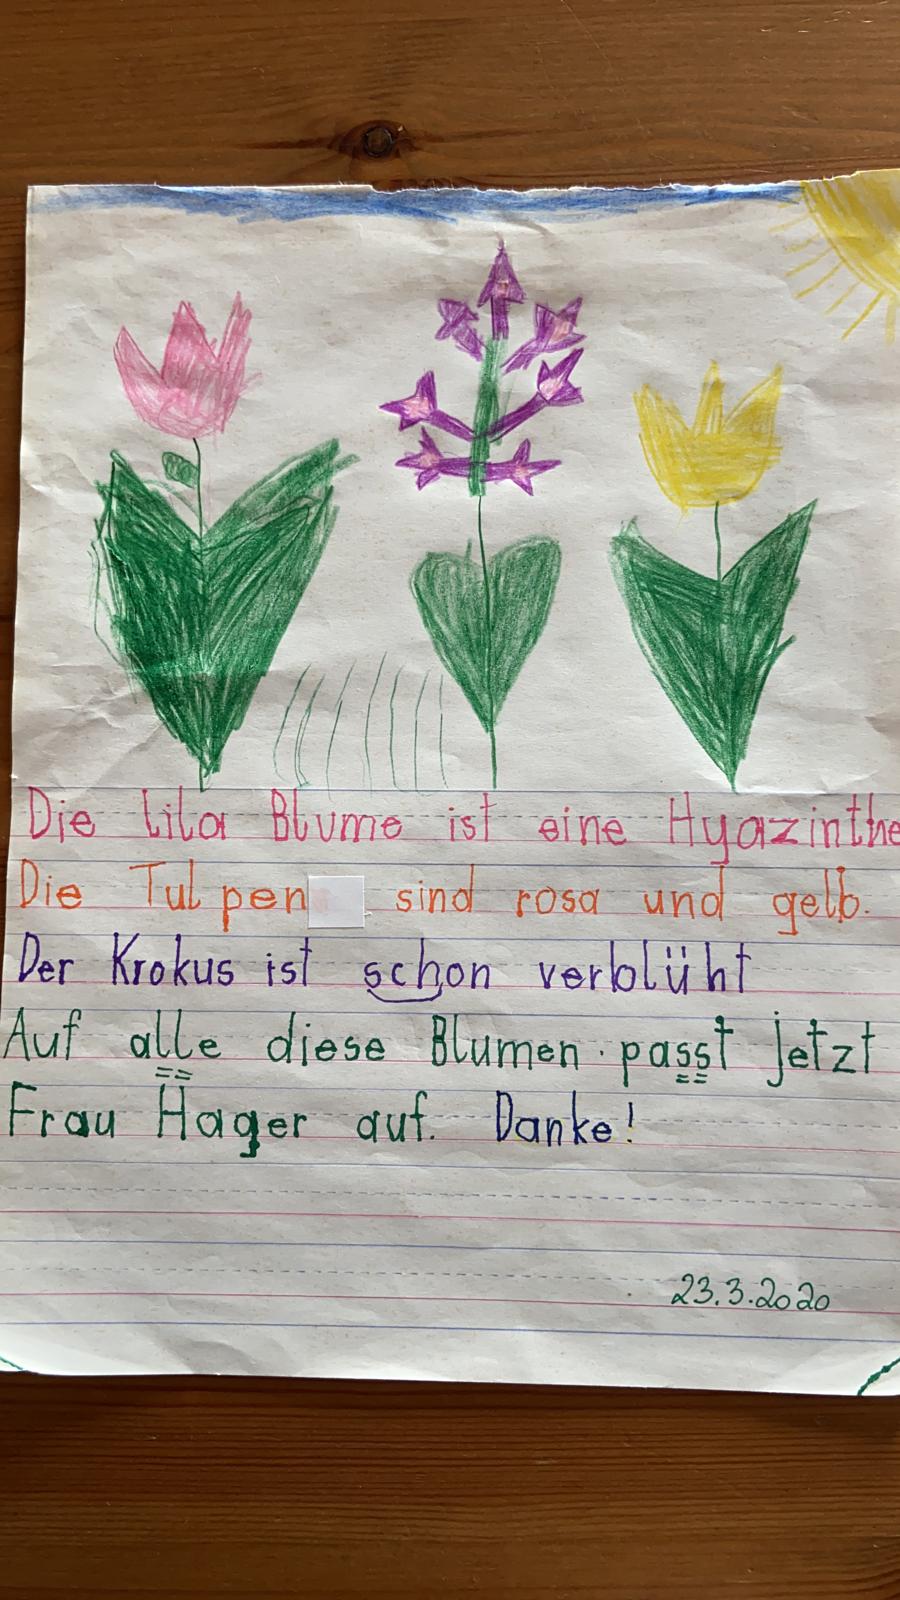 Die lila Blume ist eine Hyazinthe
Die Tulpen sind rosa und gelb.
Der Krokus ist schon verblüht
Auf alle diese Blumen passt jetzt
Frau Hager auf. Danke!
23.3.2020